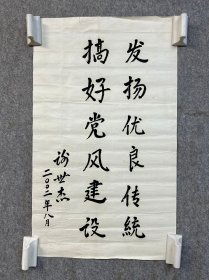 发扬优良传統
搞好党风建设
谕世杰
二〇〇二年八月